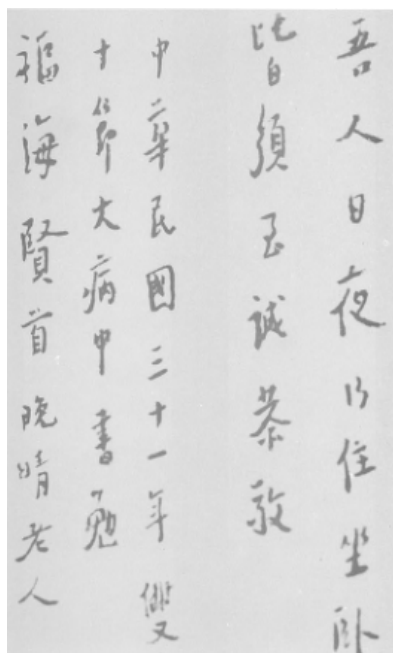 吾人日夜行住坐卧
皆須至誠恭敬
中華民國三十一年雙
十節大病中書勉
福海賢首晚晴老人